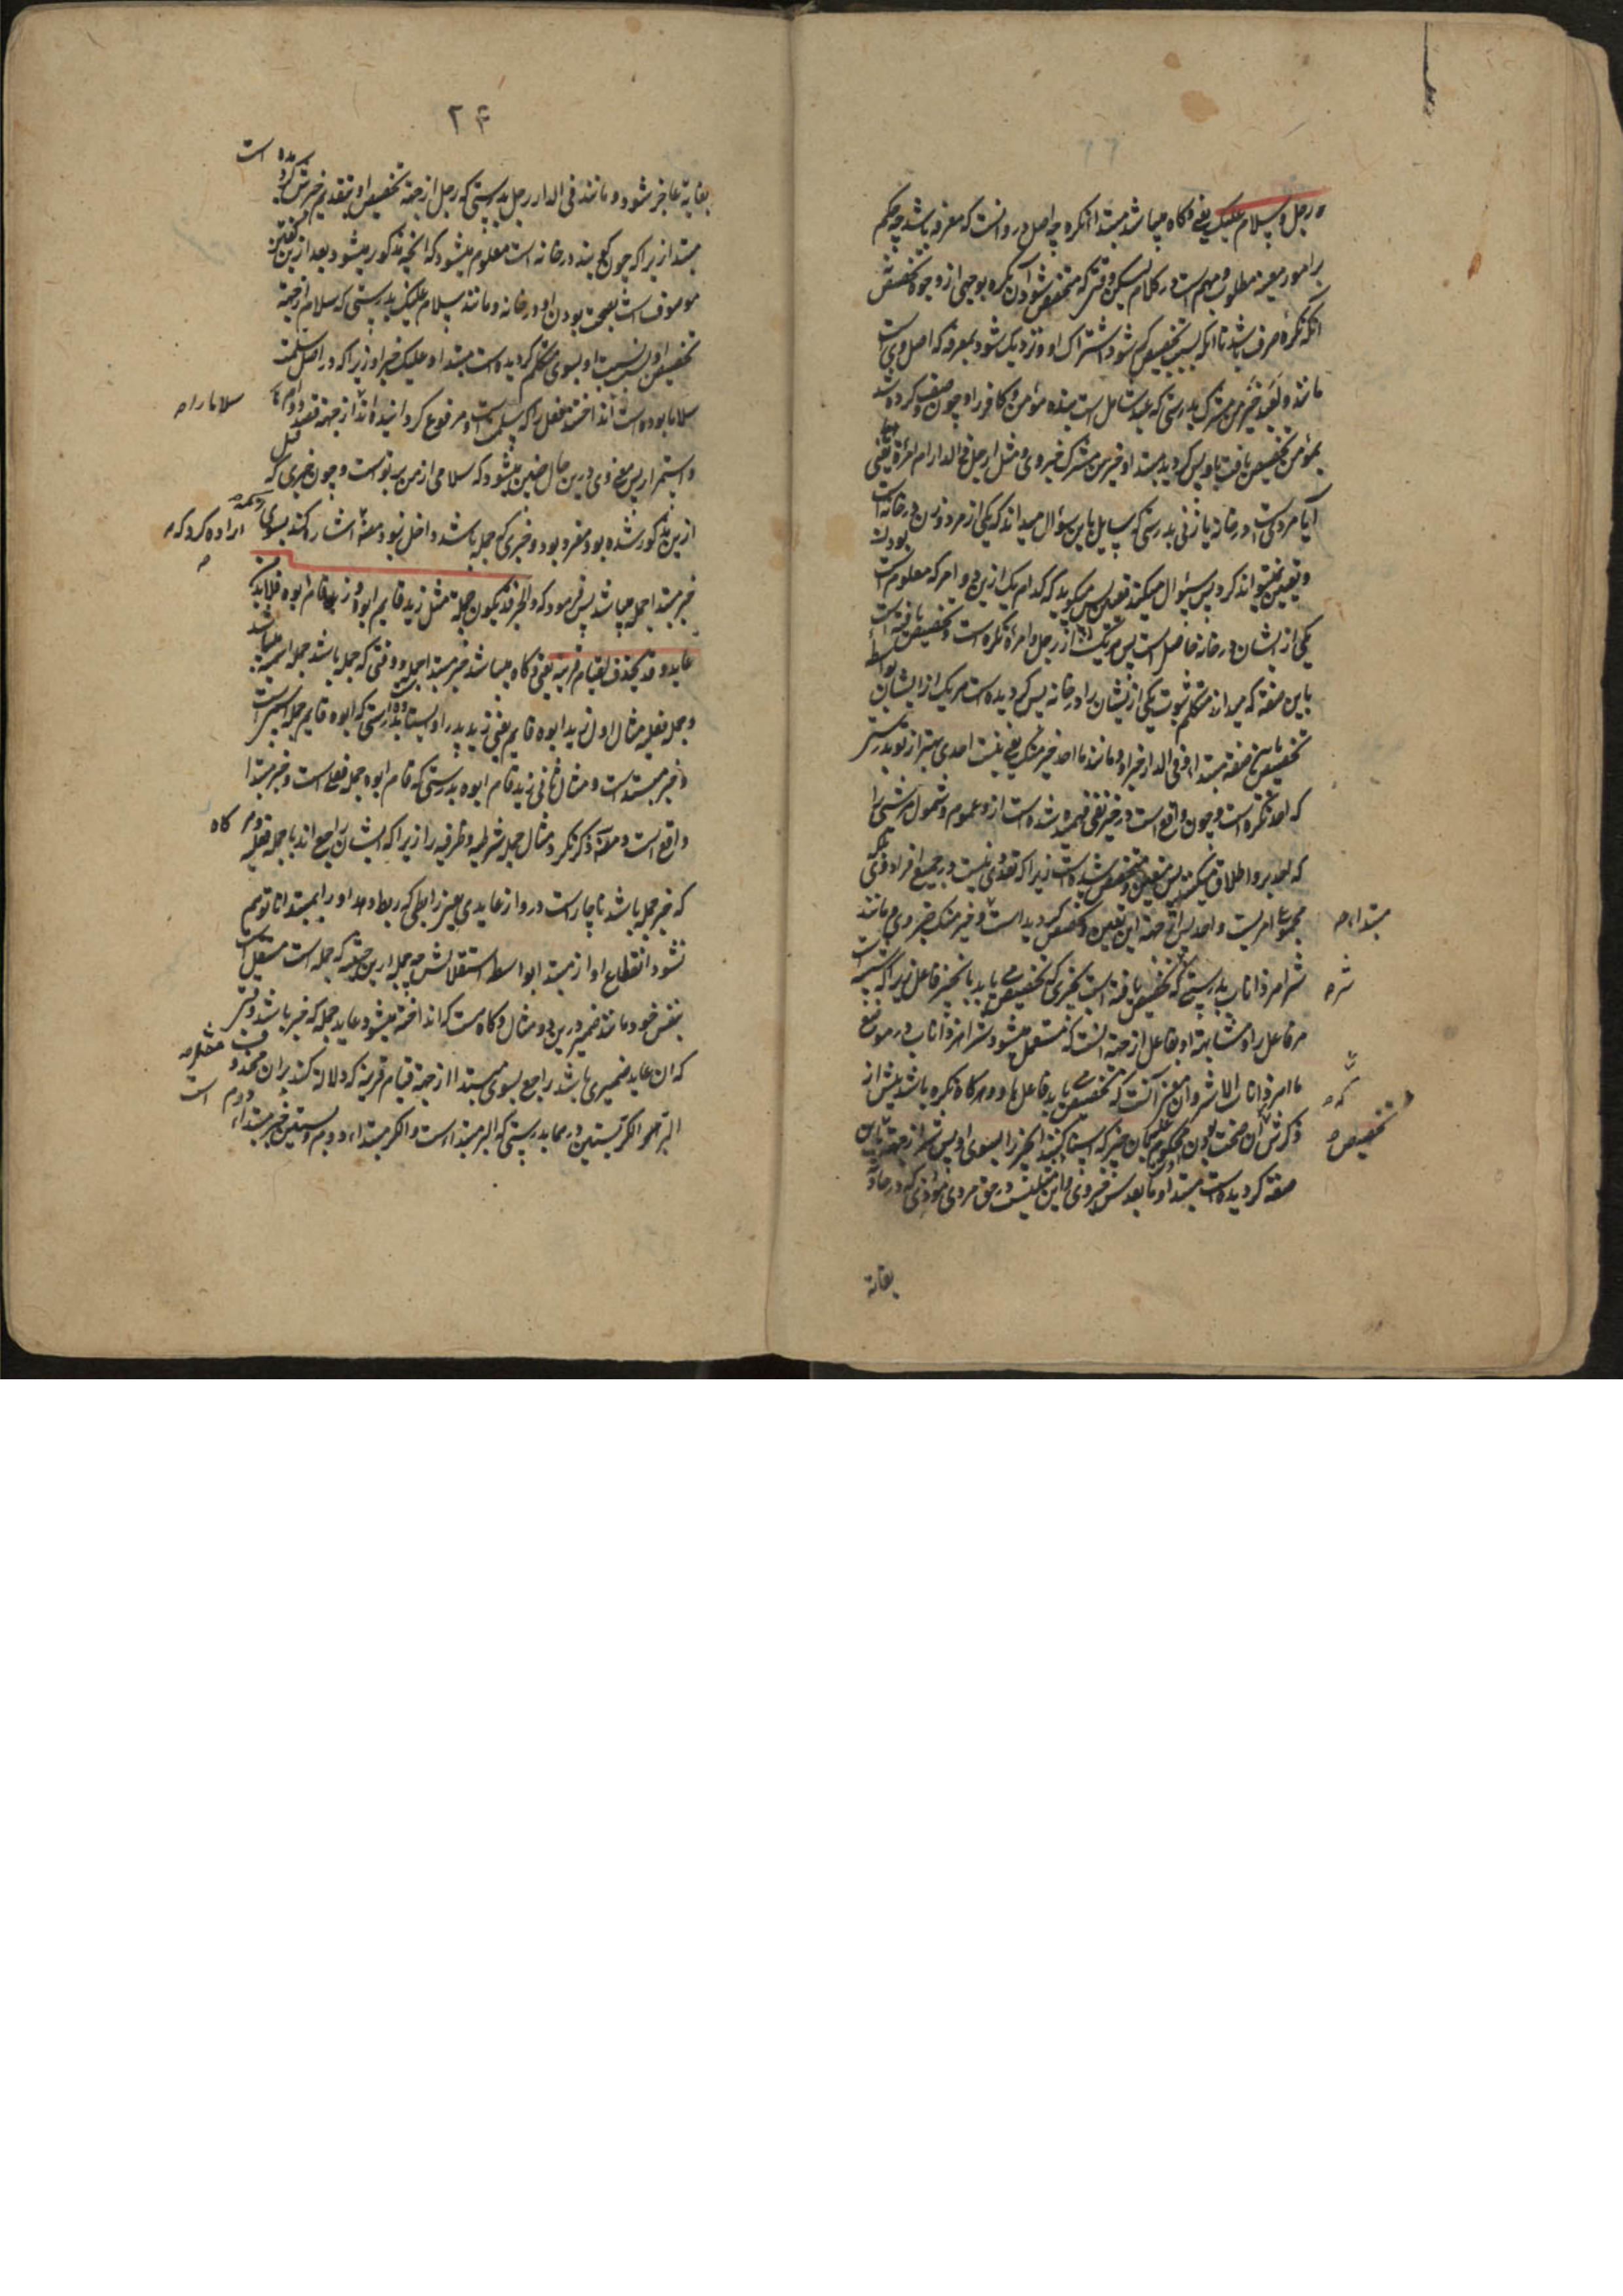 رجل و سلام علیک یعنی و گاه میباشد مبتدا نکره چه اصل درو انست که معرفه باشد چه حکم
بر امور معینه مطلوب مهم است در کلام لیکن وقتی که متخصص شود آن نکره بوجهی از وجوه تخصیص
انکه نکره صرف باشد تا انکه بسبب تخصیص کم شود اشتراک او و نزدیک شود بمعرفه که اصل وی است
مانند و لعبد مؤمن خیر من مشرک بدرستی که عبد شامل است بنده مؤمن و کافر را و چون وصف کرده شد
بمؤمن تخصیص یافت پس کردید مبتدا و خیر من مشرک خبر وی و مثل ارجل فی الدار ام امرأة یعنی
آیا مردی است در خانه یا زنی بدرستی که سایل باین سؤال میداند که یکی از مرد و زن در خانه است
و تعیین نمیتواند کرد پس سؤال میکند پس میکوید که کدام یک ازین دو امر که معلوم است بودن
یکی از ایشان در خانه حاصل است پس هر یک از رجل و امرأة نکره است و تخصیص یافته است
باین صفة که میداند متکلم ثبوت یکی از ایشان را در خانه پس کردیده است هر یک از ایشان بواسطه
تخصیص باین صفة مبتدا و فی الدار خبر او و مانند ما احد خیر منک یعنی نیست احدی بهتر از تو بدرستی
که احد نکره است و چون واقع است در حیز نفی فهمیده شده است ازو عموم و شمول هر شئ را
که احد برو اطلاق میکنند پس متعین و متخصص شده است زیرا که تعددی نیست در جمیع افراد بلکه
مجموع امریست واحد پس از جهة این تعین و تخصص کردیده است مبتداء و خیر منک خبر وی و مانند
شر اهر ذاناب بدرستی که شر تخصیص یافته است بچیزی که تخصیص می یابد بانچیز فاعل زیرا که شبیه است
مر فاعل را و مشابهة او بفاعل از جهة انست که مستعمل میشود شر اهر ذاناب در موضع
ما اهر ذاناب الا شر و ان چیز آنست که تخصیص می یابد فاعل باو و هر کاه نکره باشد پیش از
ذکرش آن صحت بودن محکوم علیه بان چیز که اسناد کنند انچیز را بسوی او پس شر از جهة این تخصیص
صفة کردیده است مبتدا و ما بعدش خبر وی و این مثلیست در حق مردی قوی که در حادثه
مبتداء
شر
که
تخصیص
بغایة
۲۴
بغایة عاجز شود و مانند فی الدار رجل بدرستی که رجل از جهة تخصیص او بتقدیم خبرش کردیده است
مبتدا زیرا که چون کویند در خانه است معلوم میشود که انچه مذکور میشود بعد ازین
موصوف است بصحت بودن او در خانه و مانند سلام علیک بدرستی که سلام از جهة
تخصیص او بسبب نسبت او بسوی متکلم کردیده است مبتدا و علیک خبر او زیرا که در اصل سلمت
سلاما بوده است انداختند فعل را که سلمت است و مرفوع کردانیده اند از جهة قصد دوام
و استمرار پس معنی وی درین حال چنین میشود که سلامی از من بر تو است و چون خبری که قبل
ازین مذکور شده بود مفرد بود و خبری که جمله باشد داخل نبود مصنف اراده کرد که اشاره کند بسوی آنکه
خبر مبتدا جمله میباشد پس فرمود که و الخبر قد یکون جملة مثل زید قایم ابوه و زید قام ابوه فلا بد من
عاید و قد یحذف لقیام قرینة یعنی و کاه میباشد خبر مبتدا جمله و وقتی که جمله باشد جمله اسمیه میباشد
و جمله فعلیه مثال اول زید ابوه قایم یعنی زید پدر او ایستاده است بدرستی که ابوه قایم جمله اسمیه است
و خبر مبتداست و مثال ثانی زید قام ابوه بدرستی که قام ابوه جمله فعلیه است و خبر مبتدا
واقع است و مصنف ذکر نکرد مثال جمله شرطیه و ظرفیه را زیرا که ایشان راجع اند با جمله فعلیه و هر کاه
که خبر جمله باشد ناچار است درو از عایدی یعنی رابطی که ربط دهد او را بمبتدا تا توهم
نشود انقطاع او از مبتدا بواسطه استقلالش چه جمله ازین حیثیت که جمله است مستقل است
بنفس خود مانند ضمیر درین دو مثال و کاه هست که انداخته میشود عاید جمله که خبر باشد وقتی
که ان عاید ضمیری باشد راجع بسوی مبتدا از جهة قیام قرینه که دلالة کند بران محذوف
البر الکر بستین درهما بدرستی که البر مبتداء است و الکر مبتداء دوم و بستین خبر مبتداء دوم است
سلاما را
اراده کرد که
مثل